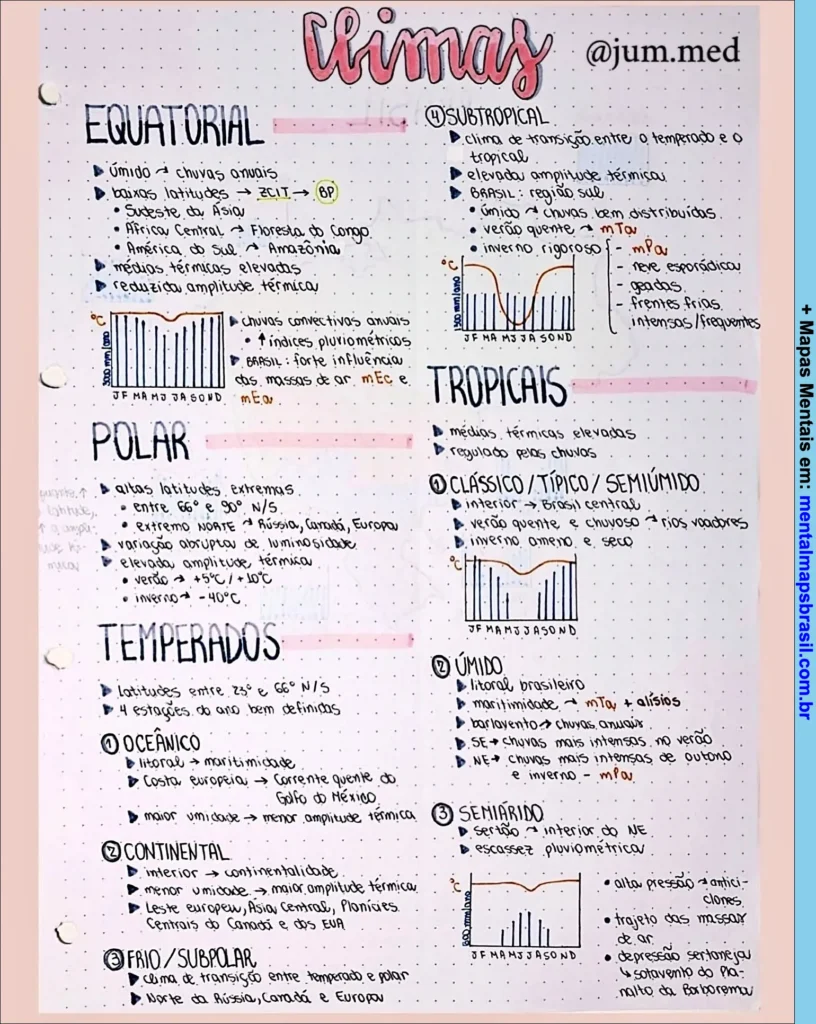 Climas
@jum.med
EQUATORIAL
úmido → chuvas anuais
baixas latitudes → ZCIT → BP
• Sudeste da Ásia
• África Central → Floresta do Congo
• América do Sul → Amazônia
médias térmicas elevadas
reduzida amplitude térmica
°C
3000 mm/ano
J F M A M J J A S O N D
chuvas convectivas anuais
• ↑ índices pluviométricos
BRASIL: forte influência
das massas de ar mEc e
mEa
POLAR
altas latitudes extremas
• entre 66° e 90° N/S
• extremo NORTE → Rússia, Canadá, Europa
variação abrupta de luminosidade
elevada amplitude térmica
• verão → +5°C / +10°C
• inverno → -40°C
TEMPERADOS
latitudes entre 23° e 66° N/S
4 estações do ano bem definidas
① OCEÂNICO
litoral → maritimidade
Costa europeia → Corrente quente do
Golfo do México
maior umidade → menor amplitude térmica
② CONTINENTAL
interior → continentalidade
menor umidade → maior amplitude térmica
Leste europeu, Ásia Central, Planícies
Centrais do Canadá e dos EUA
③ FRIO / SUBPOLAR
clima de transição entre temperado e polar
Norte da Rússia, Canadá e Europa
④ SUBTROPICAL
clima de transição entre o temperado e o
tropical
elevada amplitude térmica
BRASIL: região sul
• úmido → chuvas bem distribuídas
• verão quente → mTa
• inverno rigoroso - mPa
- neve esporádica
- geadas
- frentes frias
intensas/frequentes
°C
J F M A M J J A S O N D
TROPICAIS
médias térmicas elevadas
regulado pelas chuvas
① CLÁSSICO / TÍPICO / SEMIÚMIDO
interior → Brasil central
verão quente e chuvoso → rios voadores
inverno ameno e seco
°C
J F M A M J J A S O N D
② ÚMIDO
litoral brasileiro
maritimidade → mTa + alísios
barlavento → chuvas anuais
SE → chuvas mais intensas no verão
NE → chuvas mais intensas de outono
e inverno - mPa
③ SEMIÁRIDO
sertão → interior do NE
escassez pluviométrica
°C
J F M A M J J A S O N D
• alta pressão → antici-
clones
• trajeto das massas
de ar
• depressão sertaneja
↳ sotavento do Pla-
nalto da Borborema
+ Mapas Mentais em: mentalmapsbrasil.com.br